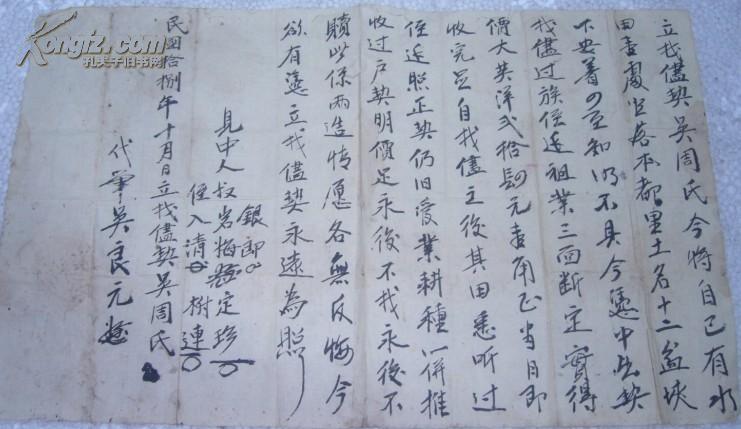 立找儘契吴周氏今将自已有水
田壹處坐落本都里土名十二盆垅
下安着四至知明不具今憑中出契
找儘过族侄近祖業三面断定實得
價大英洋弍拾肆元壹角正当日即
收完足自找儘之後其田悉听过
侄近照正契仍旧受業耕種一併推
收过户契明價足永後不找永後不
贖此係两造情愿各無反悔今
欲有憑立找儘契永遠為照
銀郎
見中人叔岩梅 定珍
侄入清 樹連
民國拾捌年十月日立找儘契吴周氏
代筆吴良元
Kongfz.com
孔夫子旧书网